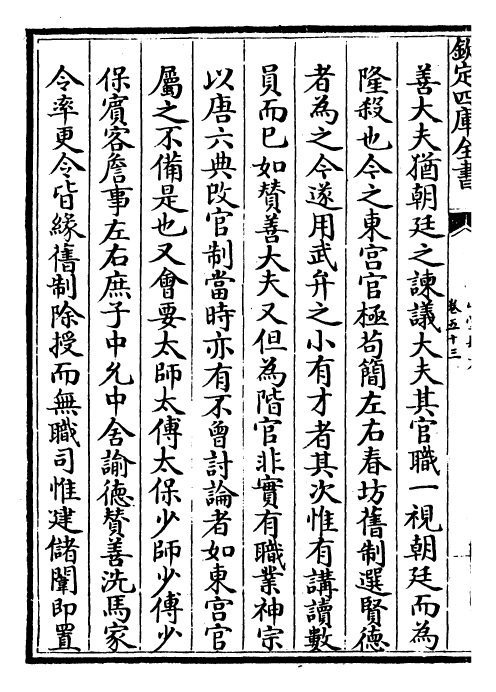 欽定四庫全書
卷五十三
善大夫猶朝廷之諫議大夫其官職一視朝廷而為
隆殺也今之東宫官極苟簡左右春坊舊制選賢德
者為之今遂用武弁之小有才者其次惟有講讀數
員而已如贊善大夫又但為階官非實有職業神宗
以唐六典改官制當時亦有不曾討論者如東宫官
屬之不備是也又會要太師太傅太保少師少傅少
保賓客詹事左右庶子中允中舍諭德贊善洗馬家
令率更令皆緣舊制除授而無職司惟建儲闈即置